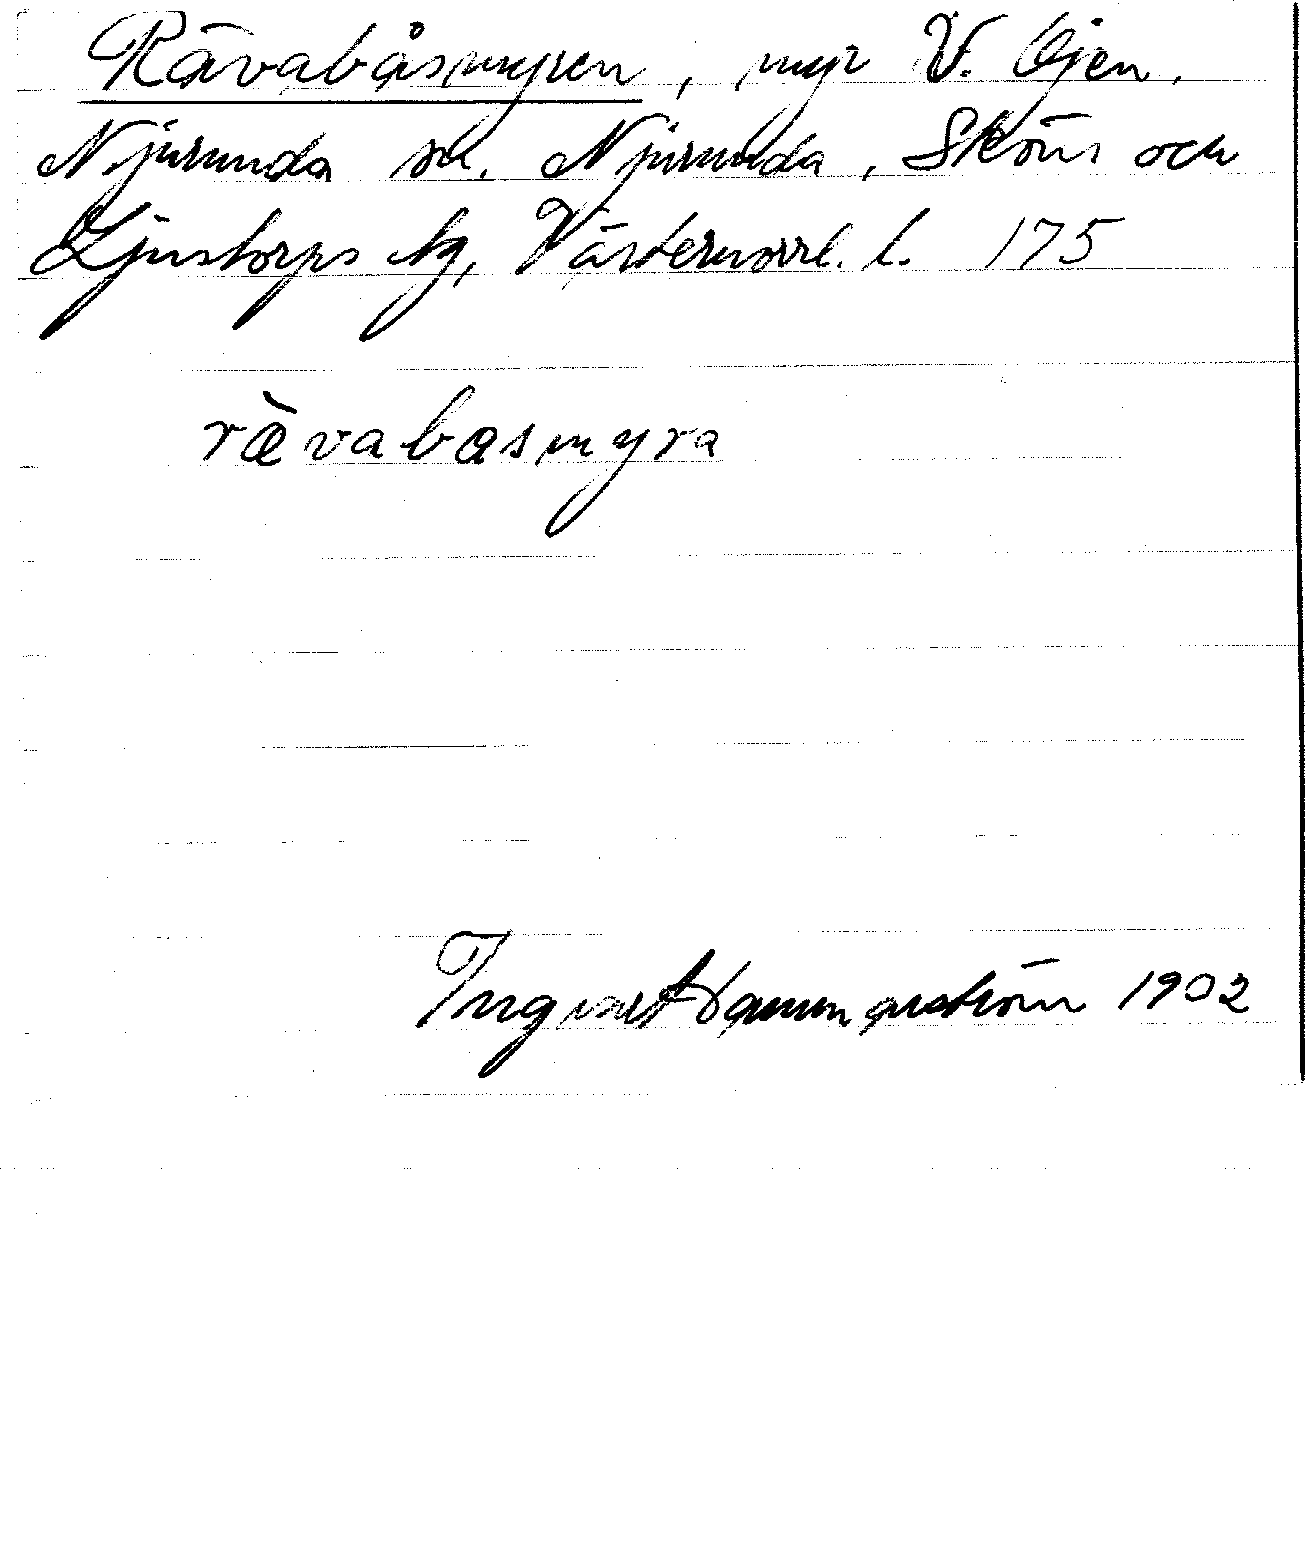 Rävabåsmyren, myr V. Öjen.
Njurunda sn. Njurunda, Sköns och
Ljustorps tg, Västernorrl. l. 175
rævabasmyra
Ingvart Hammarström 1902